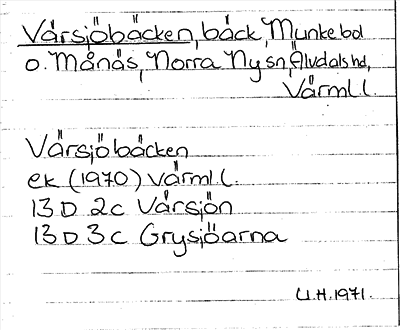 Vårsjöbäcken, bäck, Munkebol
o. Månäs, Norra Ny sn, Älvdals hd,
Värml l.
Vårsjöbäcken
ek (1970) Värml l.
13 D 2c Vårsjön
13 D 3c Grysjöarna
U.H. 1971.